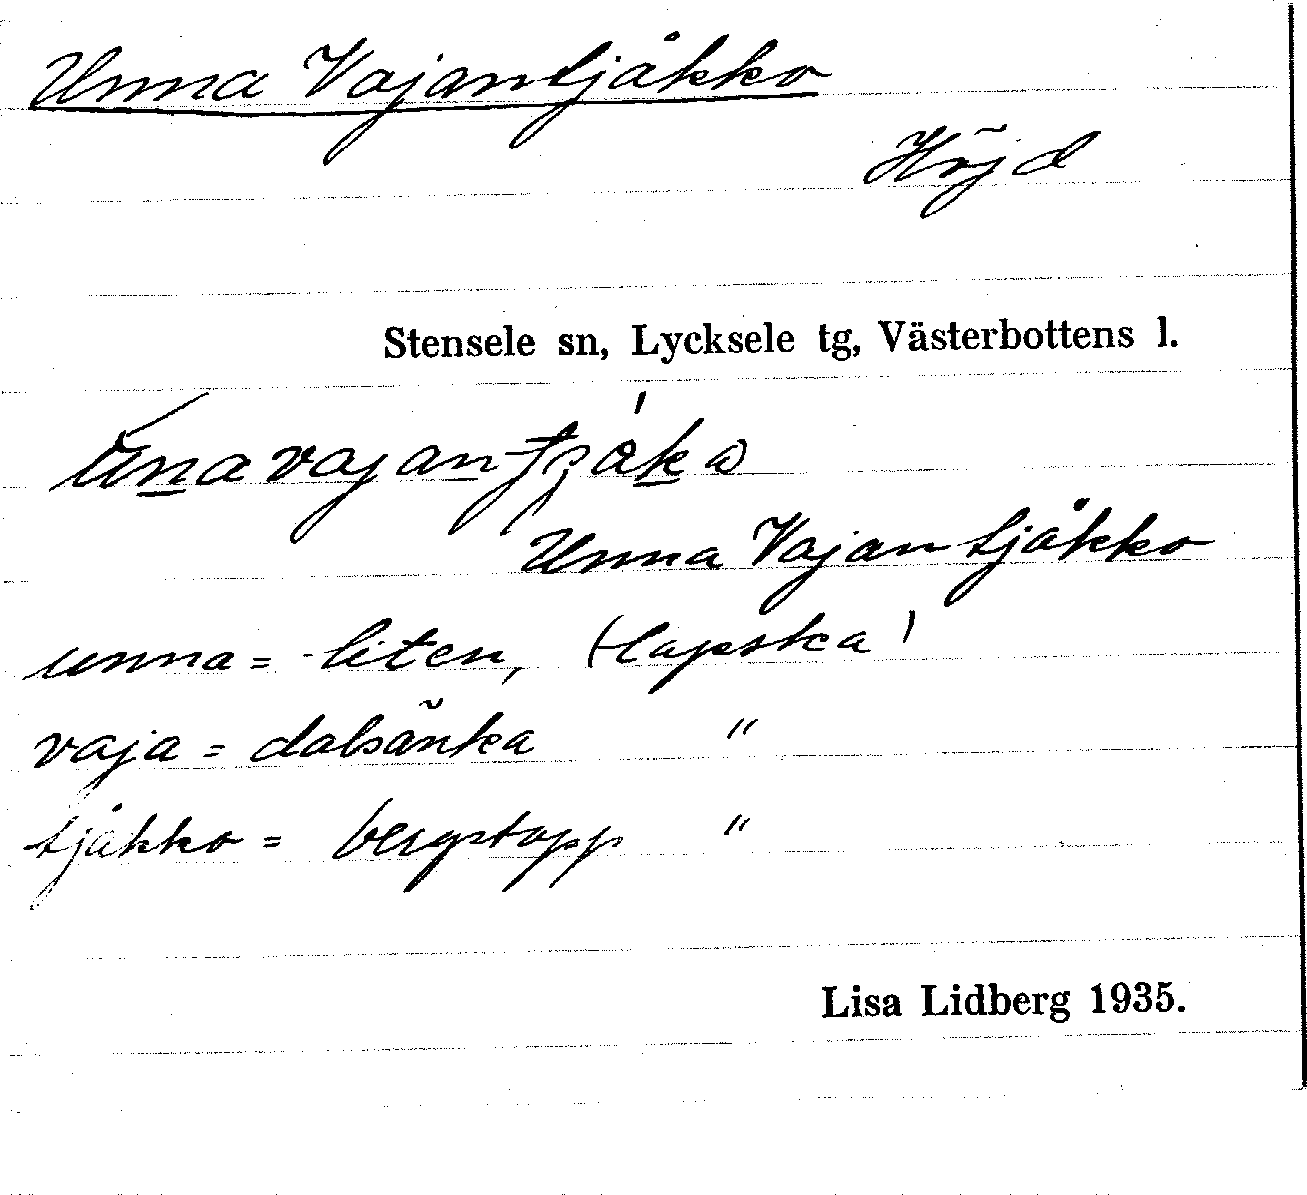 Unna Vajantjåkko
Höjd
Stensele sn, Lycksele tg, Västerbottens l.
Unna Vajantjåkko
unna = liten, (lapska)
vaja = dalsänka "
tjåkko = bergstopp "
Lisa Lidberg 1935.